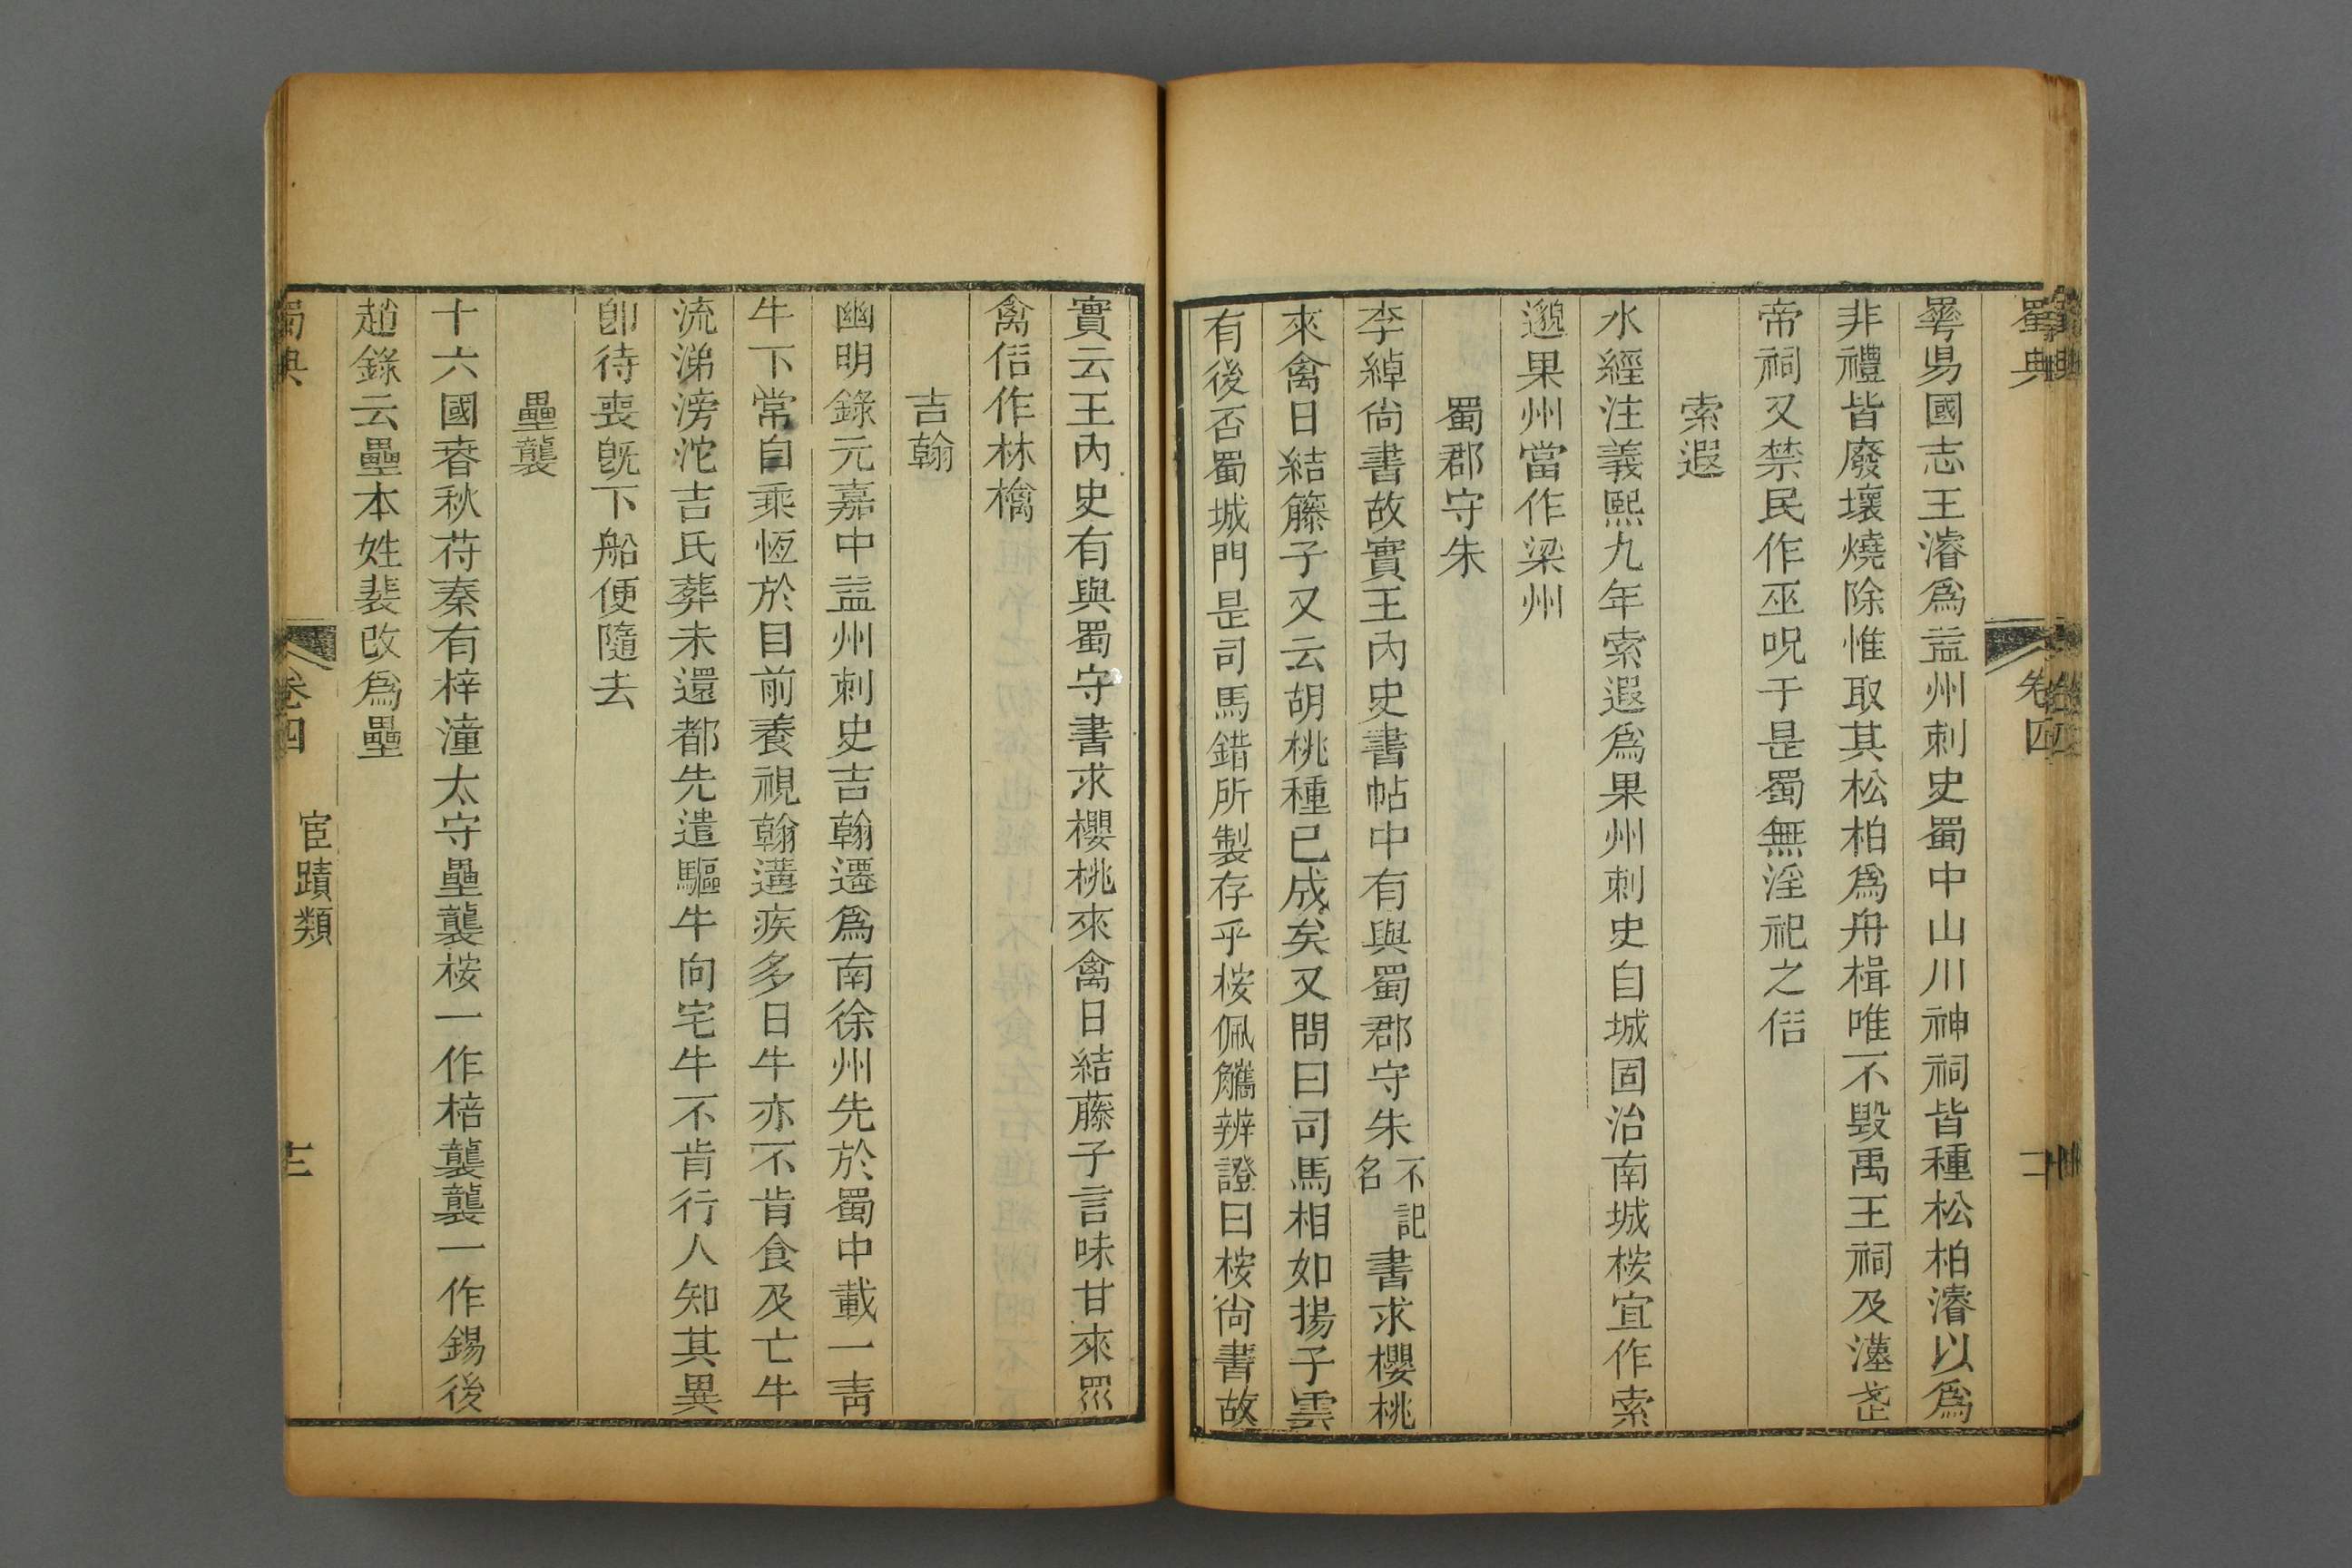 蜀典
卷四
華昜國志王濬爲益州刺史蜀中山川神祠皆種松柏濬以爲
非禮皆廢壞燒除惟取其松柏爲舟楫唯不毀禹王祠及漢武
帝祠又禁民作巫呪于是蜀無淫祀之俗
索遐
水經注義熙九年索遐爲果州刺史自城固治南城桉宜作索
邈果州當作梁州
蜀郡守朱
李綽尙書故實王內史書帖中有與蜀郡守朱不記名書求櫻桃
來禽日結籐子又云胡桃種已成矣又問曰司馬相如揚子雲
有後否蜀城門是司馬錯所製存乎桉佩觿辨證曰桉尙書故
實云王內史有與蜀守書求櫻桃來禽日結藤子言味甘來眾
禽俗作林檎
吉翰
幽明錄元嘉中益州刺史吉翰遷爲南徐州先於蜀中載一靑
牛下常自乘恆於目前養視翰遘疾多日牛亦不肯食及亡牛
流涕滂沱吉氏葬未還都先遣驅牛向宅牛不肯行人知其異
卽待喪旣下船便隨去
壘襲
十六國春秋苻秦有梓潼太守壘襲桉一作棓襲襲一作錫後
趙錄云壘本姓裴改爲壘
蜀典
卷四
宦蹟類